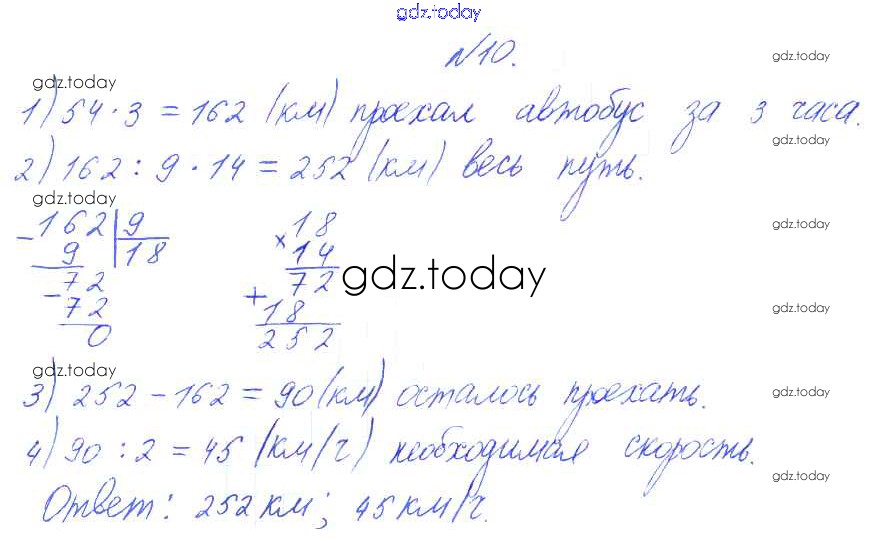 gdz.today
№10.
gdz.today
gdz.today
1) 54 · 3 = 162 (км) проехал автобус за 3 часа.
gdz.today
2) 162 : 9 · 14 = 252 (км) весь путь.
gdz.today
gdz.today
- 162 | 9
9 | 18
- 72
72
0
× 18
14
+ 72
18
252
gdz.today
gdz.today
gdz.today
3) 252 - 162 = 90 (км) осталось проехать.
gdz.today
4) 90 : 2 = 45 (км/ч) необходимая скорость.
gdz.today
Ответ: 252 км; 45 км/ч.